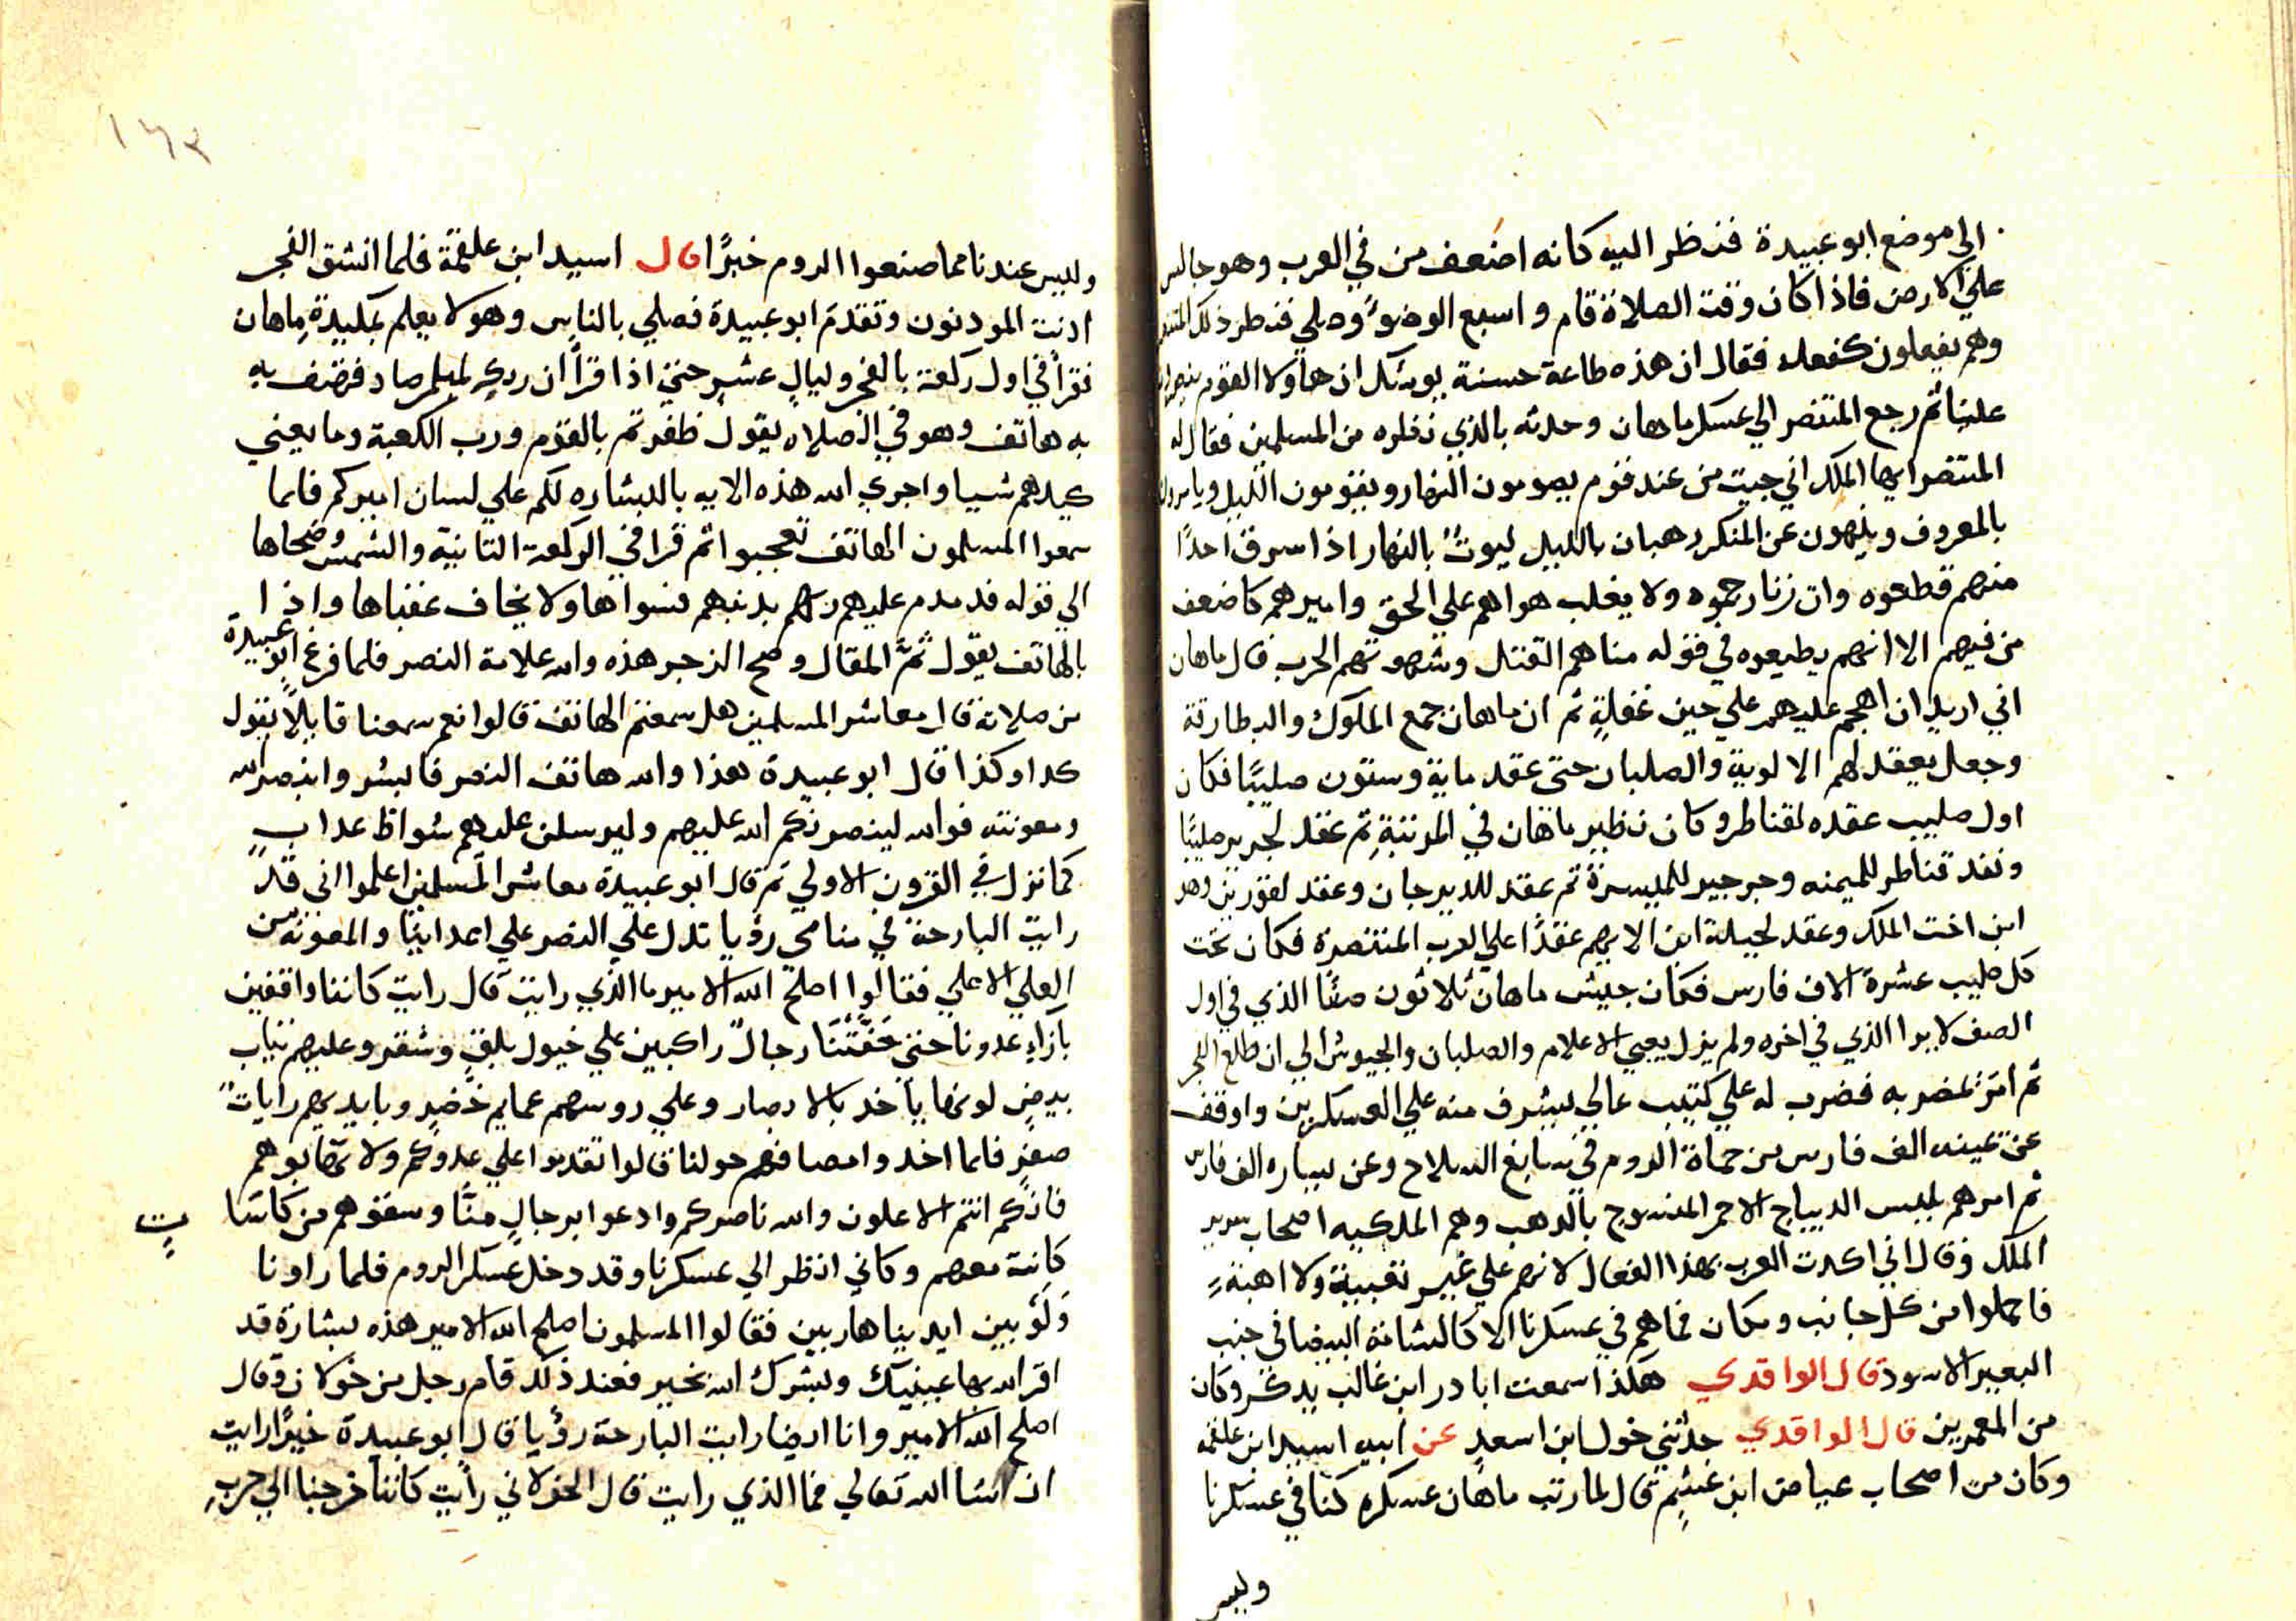 الي موضع ابو عبيدة فنظر اليه كانه اضعف من في العرب وهو جالس
علي الارض فاذا كان وقت الصلاة قام واسبع الوضوء وصلي فنظر ذلك المتنصر
وهم يفعلون كفعله فقال ان هذه طاعة حسنة يوشك ان هاولا القوم ينصرون
علينا ثم رجع المتنصر الي عسكر ماهان وحدثه بالذي نظره من المسلمين فقال له
المتنصر ايها الملك اني جيت من عند قوم يصومون النهار ويقومون الليل ويامرون
بالمعروف وينهون عن المنكر رهبان بالليل ليوث بالنهار اذا سرق احدًا
منهم قطعوه وان زنا رجموه ولا يغلب هواهم علي الحق واميرهم كاضعف
من فيهم الا انهم يطيعوه في قوله مناهم القتل وشهوتهم الحرب قال ماهان
اني اريد ان اهجم عليهم علي حين غفلةٍ ثم ان ماهان جمع الملوك والبطارقة
وجعل يعقد لهم الالوية والصلبان حتى عقد ماية وستون صليبًا فكان
اول صليب عقده لقناطر وكان نظير ماهان في المرتبةِ ثم عقد لجرير صليبًا
ونفد قناطر للميمنه وجرجير للميسرة ثم عقد للديرجان وعقد لقورين وهو
ابن اخت الملك وعقد لجبلة ابن الايهم عقدًا علي العرب المتنصرة فكان تحت
كل صليب عشرة الاف فارس فكان جيش ماهان ثلاثون صفًا الذي في اول
الصف لا يرا الذي في اخره ولم يزل يعبي الاعلام والصلبان والجيوش الي ان طلع الفجر
ثم امر بمضربه فضرب له علي كثيب عالي يشرف منه علي العسكرين واوقف
عن يمينه الف فارس من حماة الروم في سابغ السلاح وعن يساره الف فارس
ثم امرهم بلبس الديباج الاحمر المنسوج بالدهب وهم الملكيه اصحاب سرير
الملك وقال اني اكدت العرب بهذا الفعال لانهم علي غير تعبية ولا اهبةٍ
فاحملوا من كل جانب ومكان فما هم في عسكرنا الا كالشامة البيضا في جنب
البعير الاسود قال الواقدي هكذا سمعت ابا در ابن غالب يدكر وكان
من المعمرين قال الواقدي حدثني خول ابن اسعد عن ابيه اسيد ابن علقمه
وكان من اصحاب عياض ابن غنيم قال لما رتب ماهان عسكره كنا في عسكرنا
وليس
١٦٣
وليس عندنا مما صنعوا الروم خبرًا قال اسيد ابن علقمة فلما انشق الفجر
ادنت المودنون وتقدم ابو عبيدة فصلي بالناس وهو لا يعلم بمكيدة ماهان
فقرأ في اول ركعة بالفجر وليالٍ عشرٍ حتي اذا قرأ ان ربك لبالمرصاد فهتف به
به هاتف وهو في الصلاه يقول ظفرتم بالقوم ورب الكعبة وما يغني
كيدهم شيا واجري الله هذه الايه بالبشاره لكم علي لسان اميركم فلما
سمعوا المسلمون الهاتف تعجبوا ثم قرا في الركعة الثانية والشمس وضحاها
الي قوله فدمدم عليهم ربهم بدنبهم فسواها ولا يخاف عقباها واذا
بالهاتف يقول ثم المقال وصح الزجر هذه والله علامة النصر فلما فرغ ابو عبيدة
من صلاته قال معاشر المسلمين هل سمعتم الهاتف قالوا نعم سمعنا قايلًا يقول
كدا وكذا قال ابو عبيدة هذا والله هاتف النصر فابشروا بنصر الله
ومعونته فوالله لينصرنكم الله عليهم وليرسلن عليهم شواظ عدابٍ
كما نزل في القرون الاولي ثم قال ابو عبيدة معاشر المسلمين اعلموا اني قد
رايت البارحة في منامى رؤيا تدل علي النصر علي اعداينا والمعونة من
العلي الاعلي فقالوا اصلح الله الامير ما الذي رايت قال رايت كاننا واقفين
بآزاء عدونا حتى حَفَّتْنَا رجالٌ راكبين علي خيول بلقٍ وشقرٍ وعليهم تياب
بيضٍ لونها يأخد بالابصار وعلي روسهم عمايم خُضرٍ وبايديهم راياتٌ
صفرٍ فلما اخدوا مصافهم حولنا قالوا تقدموا علي عدوكم ولا تهابوهم
فانكم انتم الاعلون والله ناصركم وادعوا برجالٍ منَّا وسقوهم من كاسَا
تٍ
كانت معهم وكاني انظر الي عسكرنا وقد دخل عسكر الروم فلما راونا
وَلَّوْ بين ايدينا هاربين فقالوا المسلمون اصلح الله الامير هذه بشارة قد
اقر الله بها عينيك وبشرك الله بخير فعند ذلك قام رجل من خولان وقال
اصلح الله الامير وانا ايضا رايت البارحة رؤيا قال ابو عبيدة خيرًا رايت
ان شا الله تعالي فما الذي رايت قال الخولاني رأيت كاننا خرجنا الي حربِ